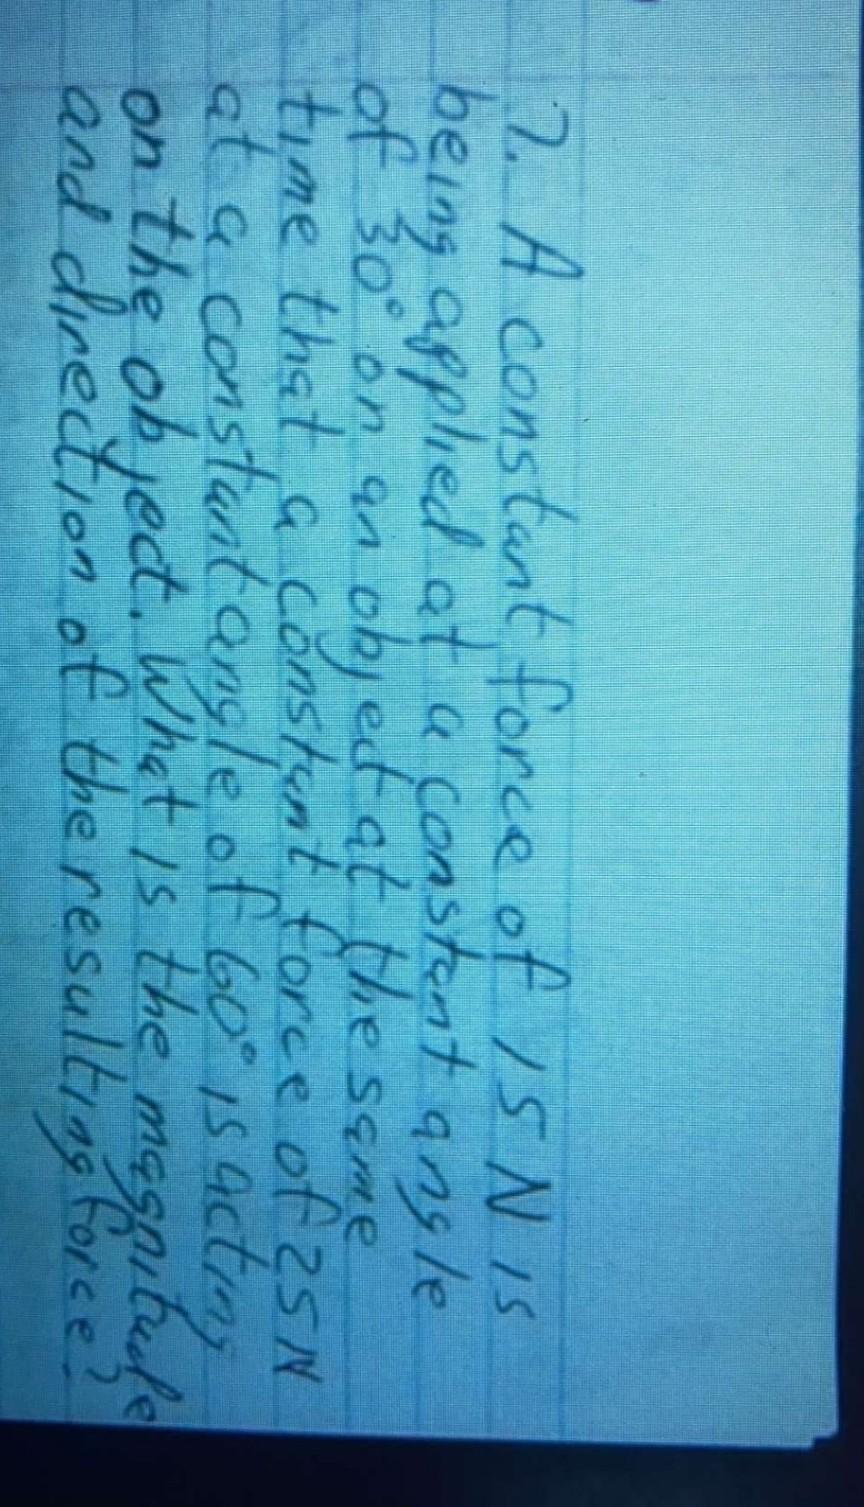 7. A constant force of 15 N is
being applied at a constant angle
of 30° on an object at the same
time that a constant force of 25N
at a constant angle of 60° is acting
on the object. What is the magnitude
and direction of the resulting force?